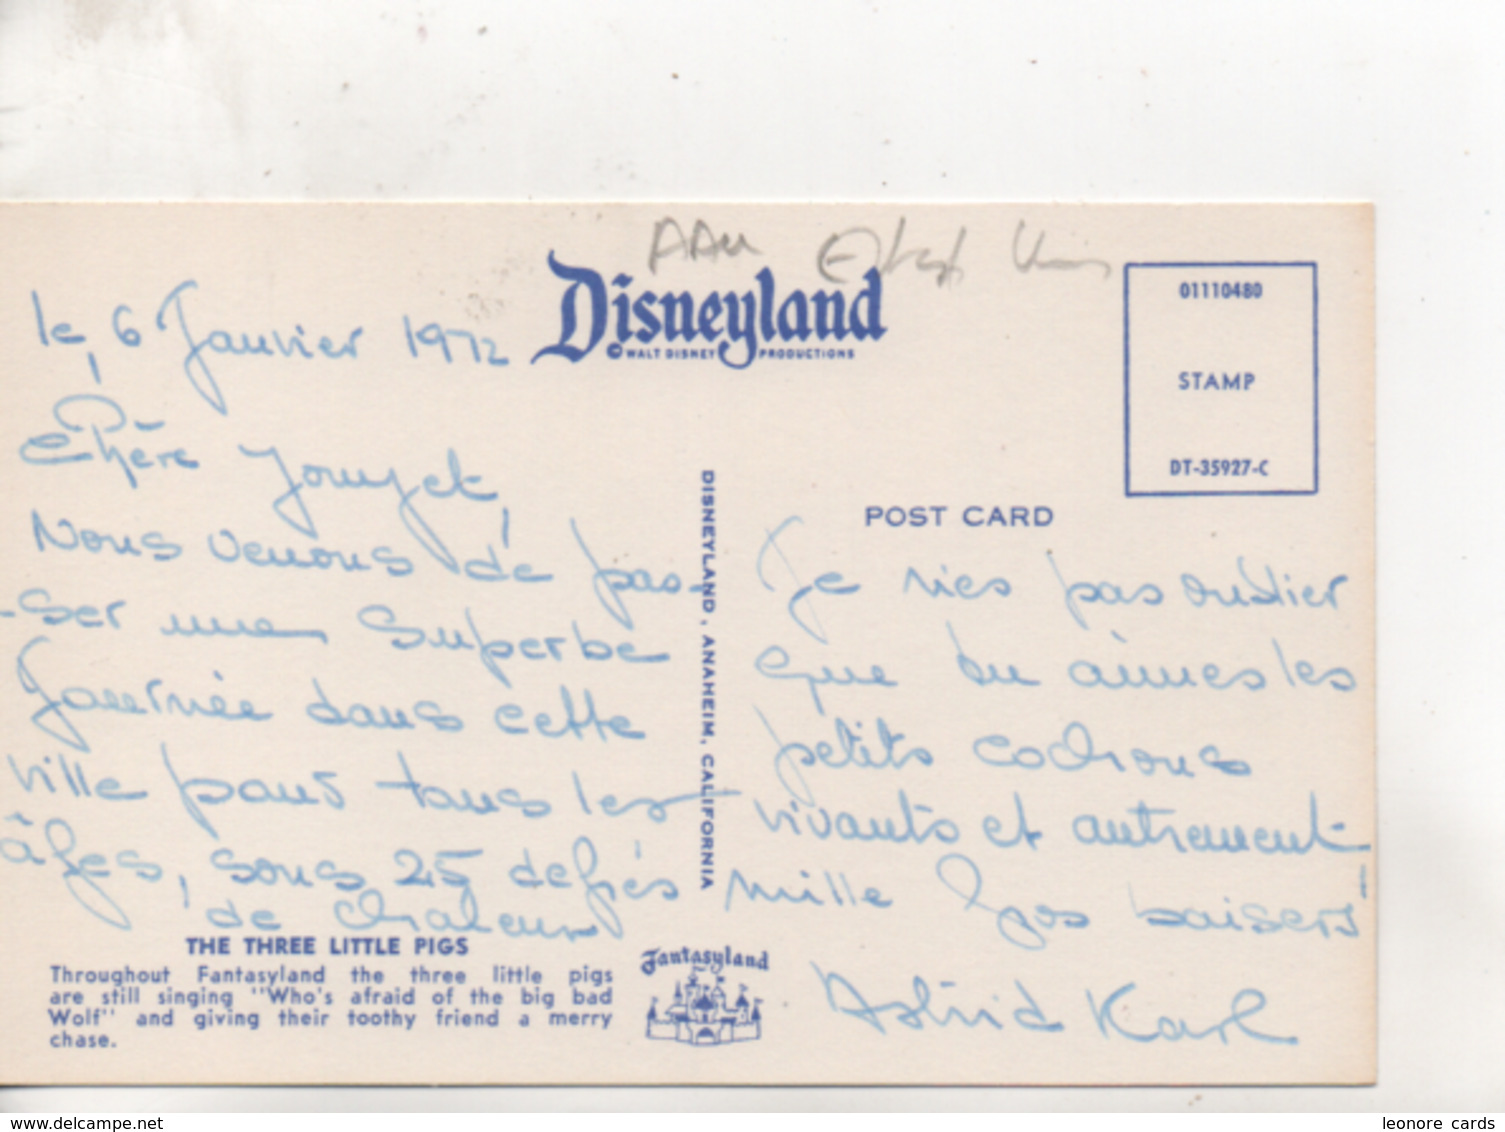 Disneyland
© WALT DISNEY PRODUCTIONS
01110480
STAMP
DT-35927-C
POST CARD
DISNEYLAND, ANAHEIM, CALIFORNIA
le, 6 Janvier 1972
Chère
Nous venons de pas-
-ser une superbe
Journée dans cette
ville pour tous les
âges, sous 25 degrés
de chaleur
Je n'ies pas oublier
que tu aimes les
petits cochons
vivants et autrement
mille gos baisers
Astrid Karl
THE THREE LITTLE PIGS
Throughout Fantasyland the three little pigs
are still singing "Who's afraid of the big bad
Wolf" and giving their toothy friend a merry
chase.
Fantasyland
www.delcampe.net
leonore cards